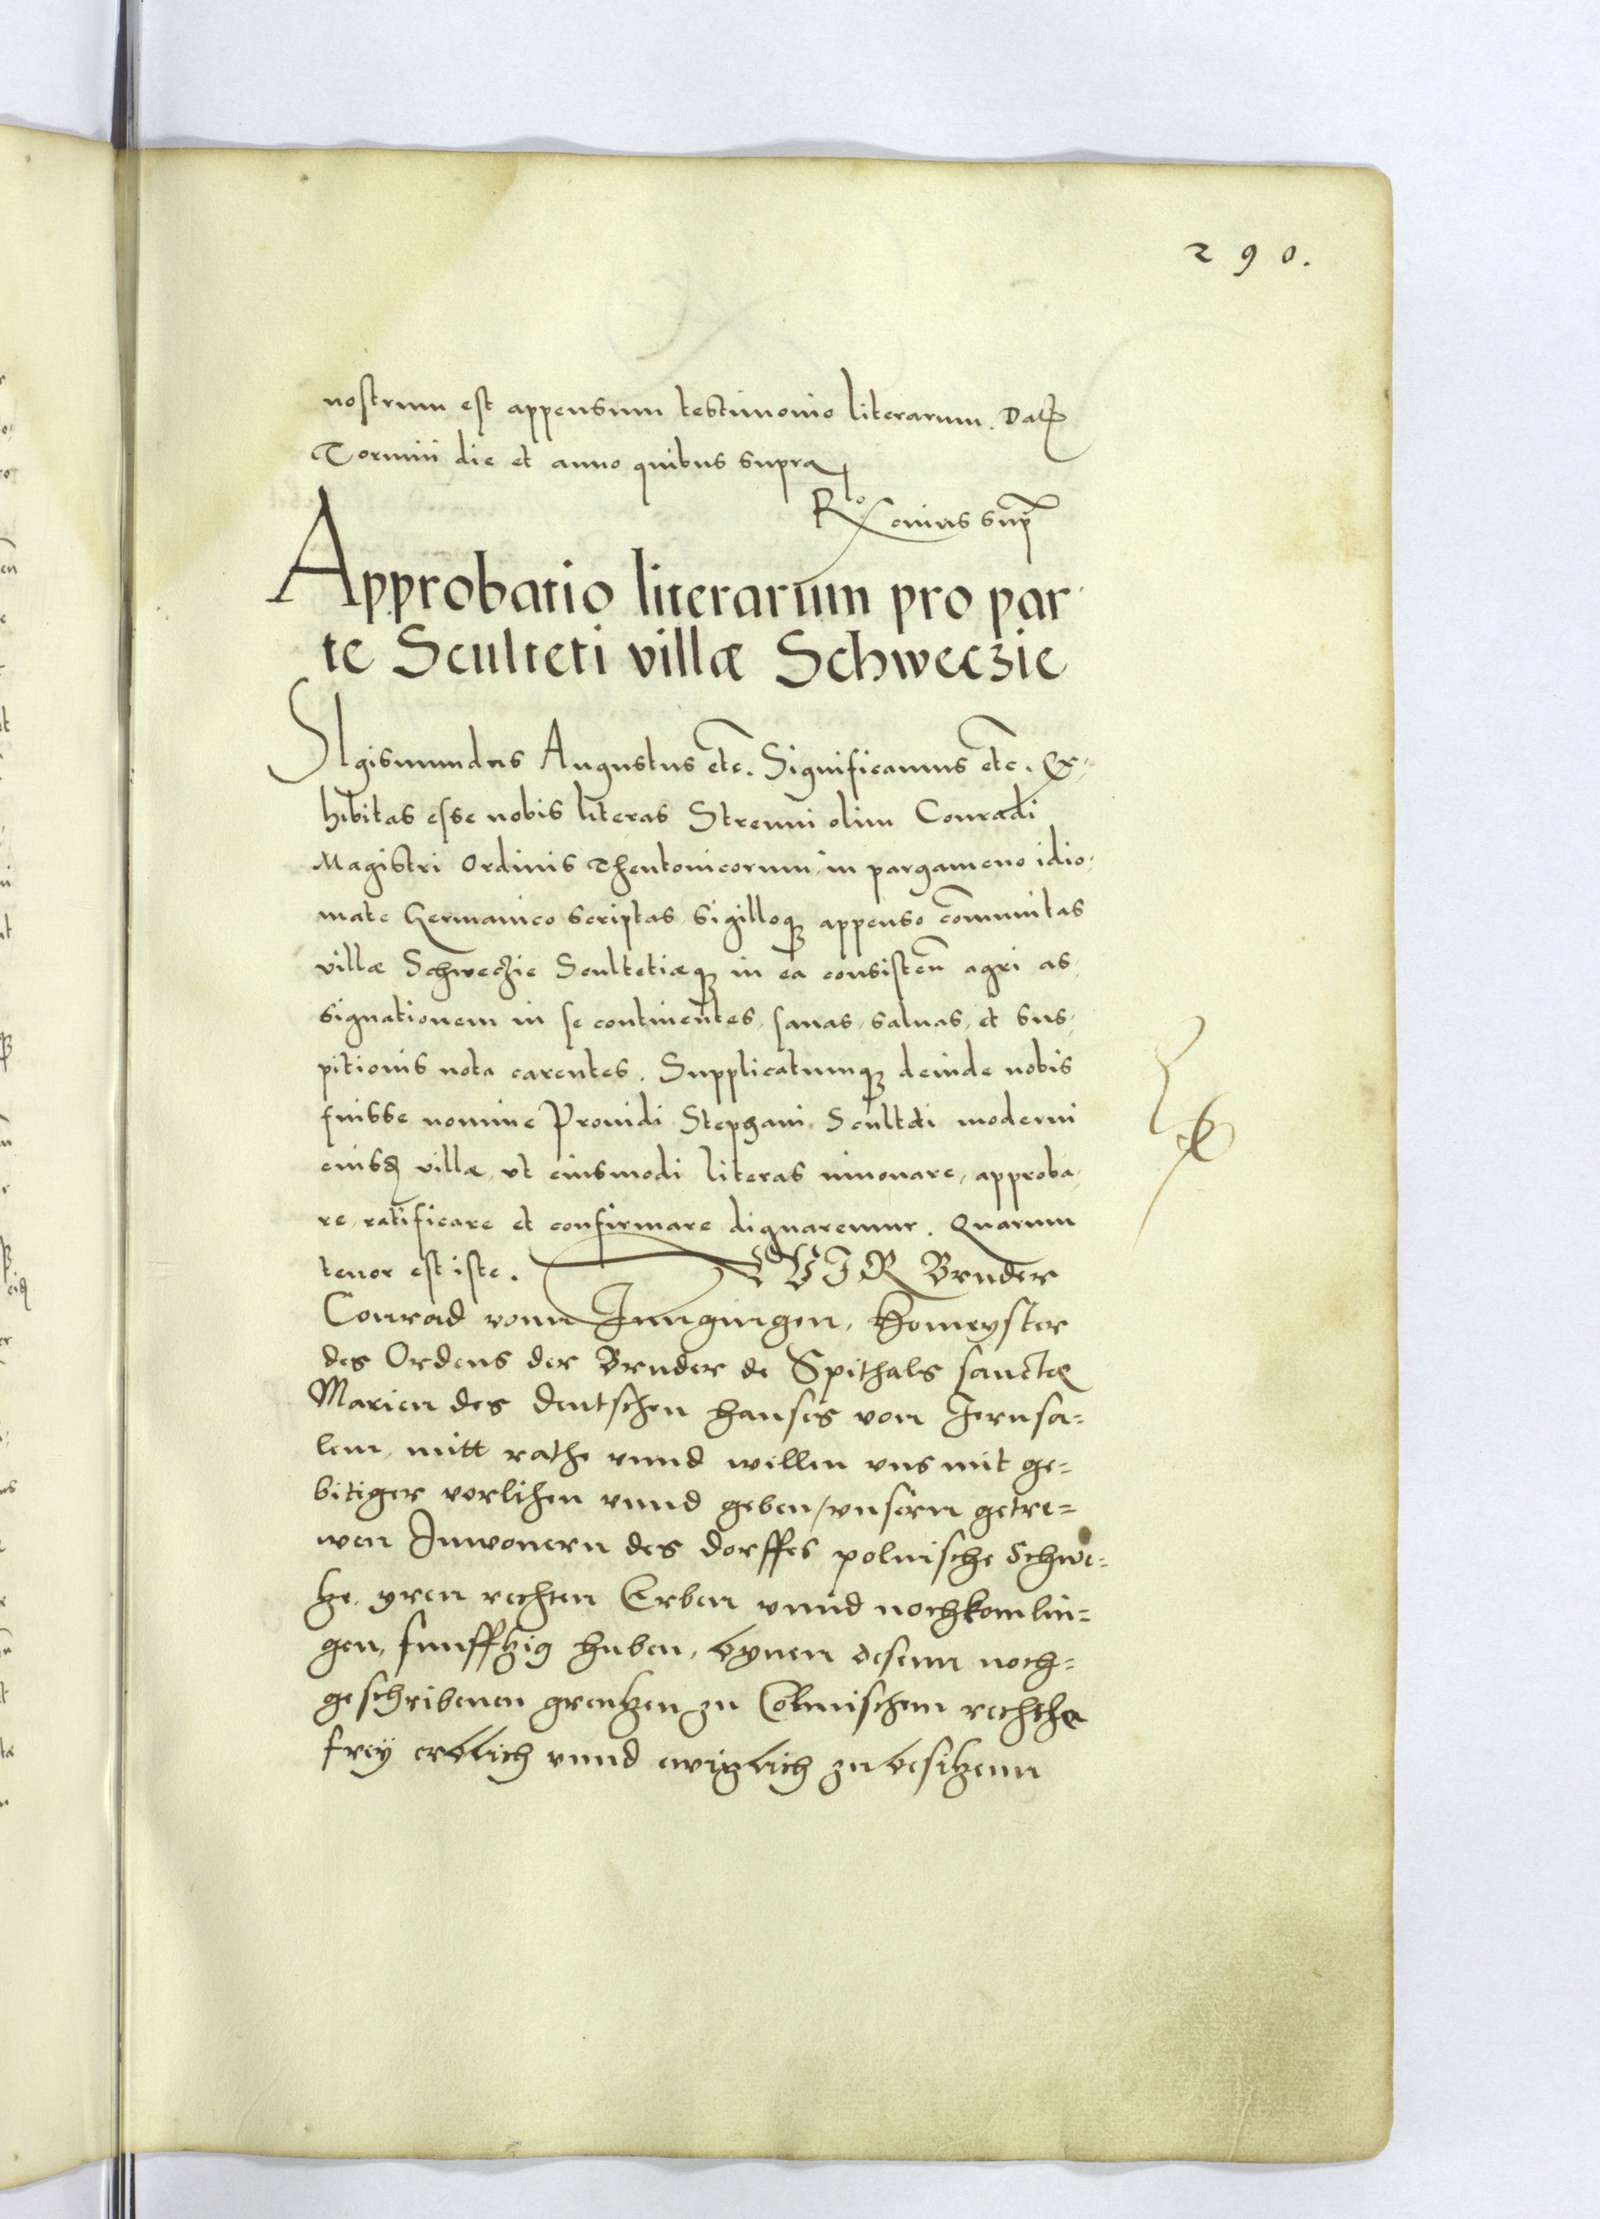 290.
nostrum est appensum testimonio literarum. Dat
Torunii die et anno quibus supra
R.o eiius sup
Approbatio literarum pro par
te Sculteti villæ Schweczie
SIgismundus Augustus etc. Significamus etc. Ex-
hibitas esse nobis literas Strenui olim Conradi
Magistri Ordinis Theutonicorum, in pargameno idio-
mate Germanico scriptas, sigilloq; appenso communitas
villæ Schweczie Scultetiæq; in ea consisten agri as-
signationem in se continentes, sanas, saluas, et sus-
pitionis nota carentes. Supplicatumq; deinde nobis
fuisse nomine Prouidi Stephani Sculteti moderni
eiusd villæ, vt eiusmodi literas innouare, approba-
re, ratificare et confirmare dignaremur. Quarum
tenor est iste. WIR Bruder
Conrad vonn Jungingen, Homeyster
des Ordens der Bruder de Spithals sanctæ
Marien des deutschen hauses von Jerusa=
lem, mitt rathe vnnd willen vns mit ge=
bitiger vorlihen vnnd geben / vnsern getre=
wen Inwonern des dorffes polnische Schwe=
tze, yren rechten Erben vnnd nochkomlin=
gen, funfftzig huben, bynen desenn noch=
geschribenen grentzen zu Colmischem rechthe
frey erblich vnnd ewiglich zu besitzenn